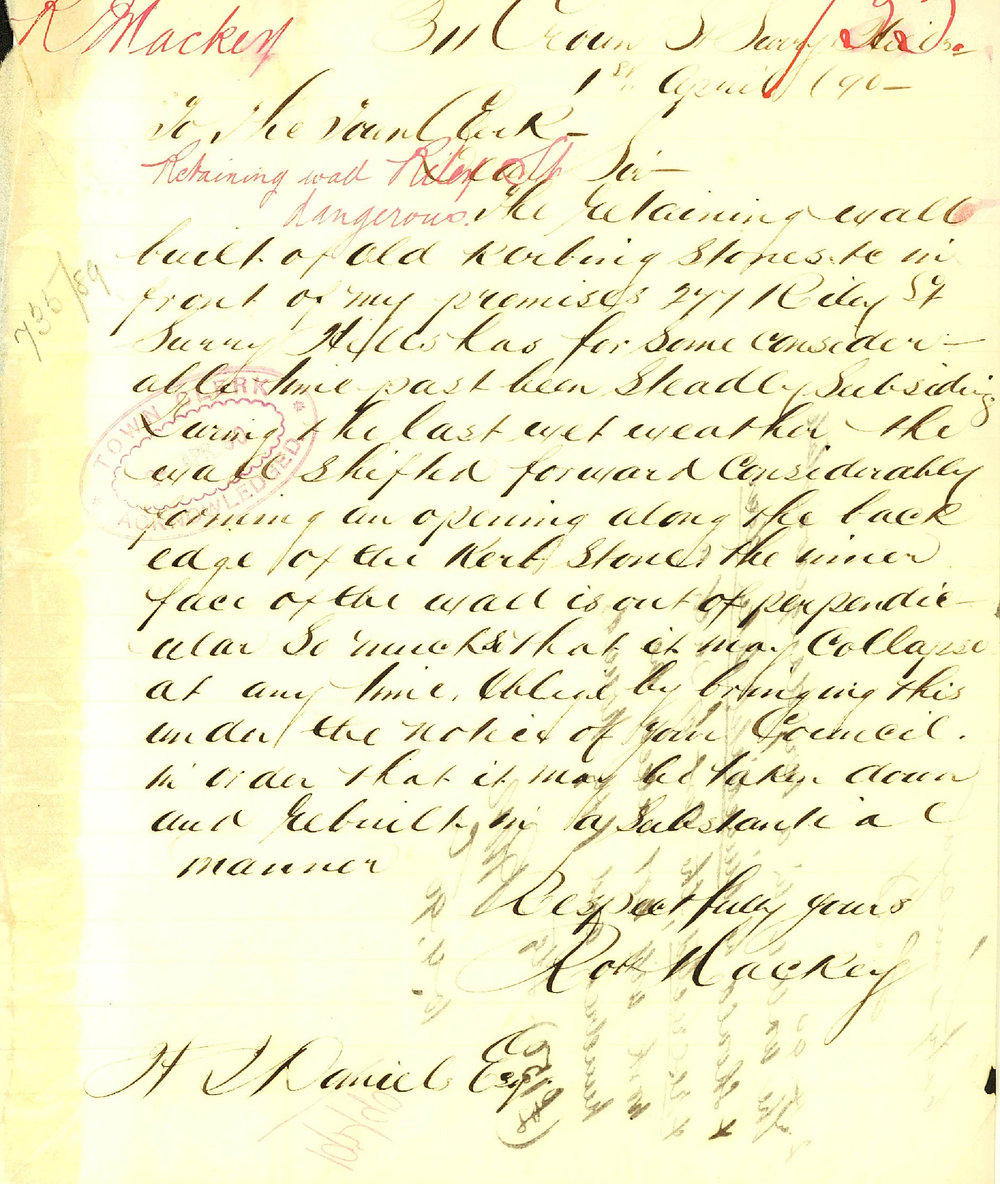 R Mackey
311 Crown St Surry Hills
1st April /90-
To The Town Clerk-
Retaining wall Riley St
dangerous.
Dear Sir-
The Retaining wall
built of old Kerbing Stones &c in
front of my premises 277 Riley St
Surry Hills has for some consider-
able time past been Steadly Subsiding
During the last wet weather the
wall shifted forward Considerably
forming an opening along the back
edge of the Kerb Stone, the inner
face of the wall is out of perpendic-
ular So much so that it may Collapse
at any time. Oblige by bringing this
under the notice of your Council.
in order that it may be taken down
and rebuilt in a Substantial
manner
Respectfully yours
Robt Mackey
H J Daniel Esq.
735/89
TOWN CLERK
ACKNOWLEDGED